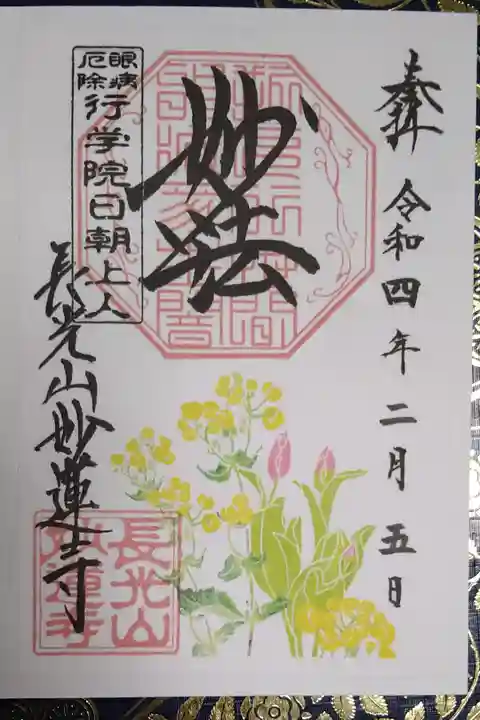 奉拝 令和四年二月五日
妙法
眼病
厄除
行学院日朝上人
長光山妙蓮寺
長光山
妙蓮寺